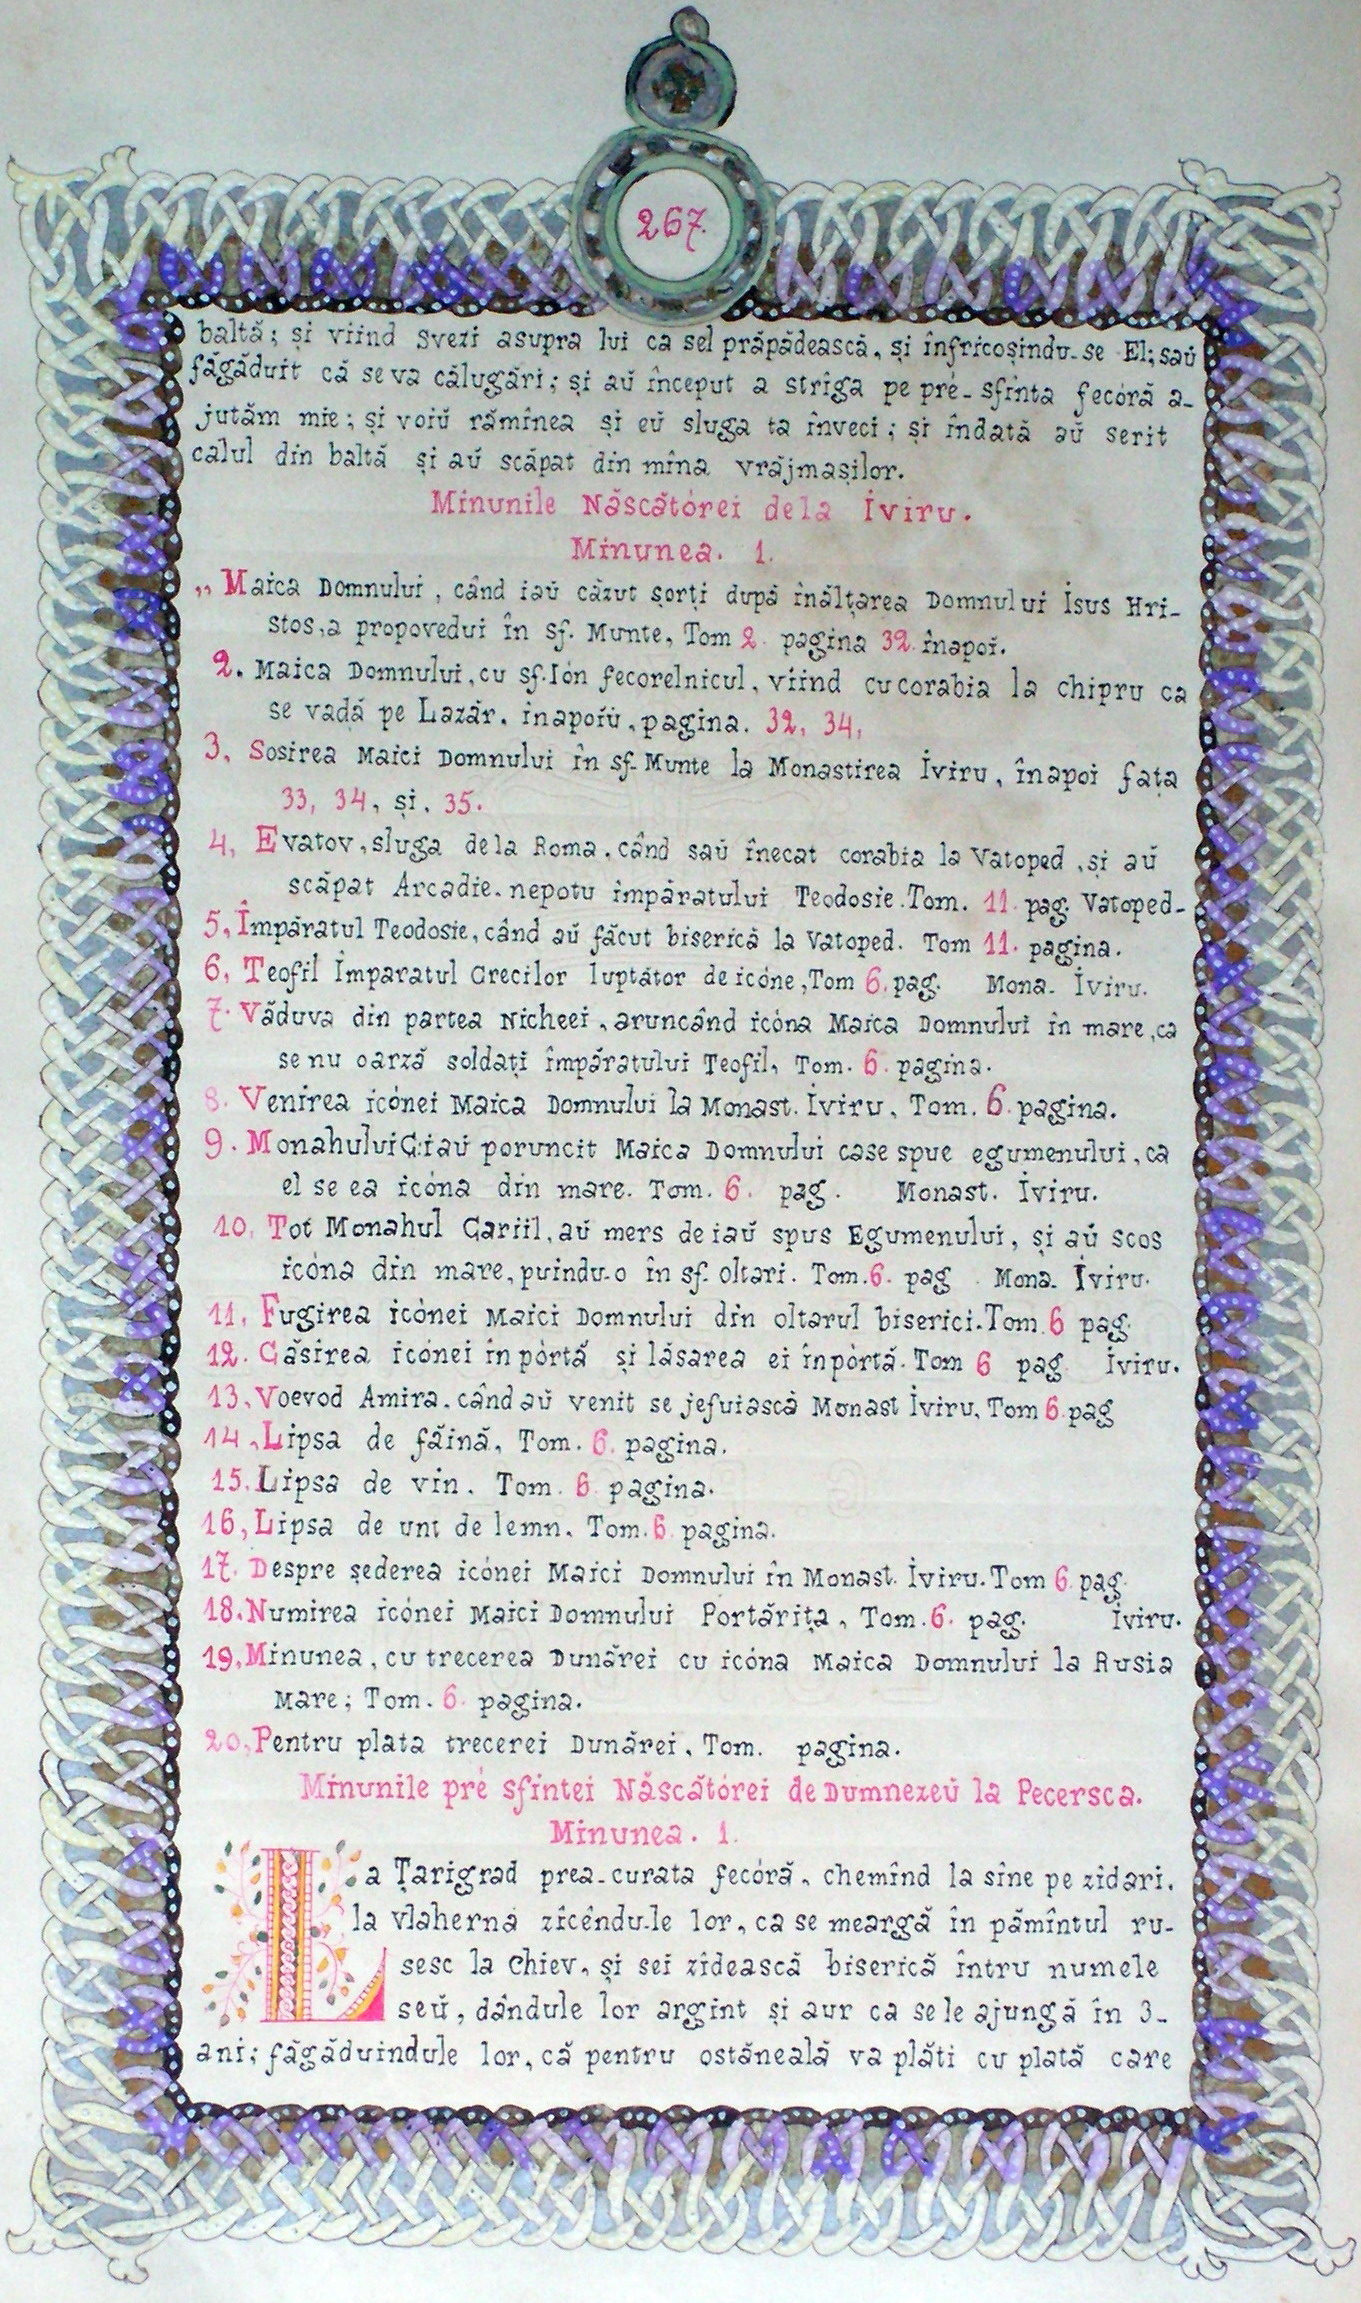 267.
baltă; și viind Svezi asupra lui ca sel prăpădească, și înfricoșindu-se El; saŭ
făgăduit că se va călugări; și aŭ început a striga pe pré-sfinta fecóră a-
jutăm mie; și voiŭ rămînea și eŭ sluga ta înveci; și îndată aŭ serit
calul din baltă și aŭ scăpat din mîna vrăjmașilor.
Minunile Născătórei dela Iviru.
Minunea. 1.
„ Maica Domnului, când iaŭ căzut sorți după înălțarea Domnului Isus Hri-
stos, a propovedui în Sf. Munte, Tom 2. pagina 32. înapoi.
2. Maica Domnului, cu sf. Ión fecorelnicul, viind cu corabia la Chipru ca
se vadă pe Lazăr. inapoiŭ, pagina. 32, 34,
3, Sosirea Maici Domnului în Sf. Munte la Monastirea Iviru, înapoi fața
33, 34, și, 35.
4, Evatov, sluga dela Roma, când saŭ înecat corabia la Vatoped, și aŭ
scăpat Arcadie. nepotu împăratului Teodosie. Tom. 11. pag. Vatoped-
5, Împăratul Teodosie, când aŭ făcut biserică la Vatoped. Tom 11. pagina.
6, Teofil Împaratul Grecilor luptător de icóne, Tom 6. pag. Mona. Iviru.
7. Văduva din partea Nicheei, aruncând icóna Maica Domnului în mare, ca
se nu oarză soldați împăratului Teofil, Tom. 6. pagina.
8. Venirea icónei Maica Domnului la Monast. Iviru, Tom. 6. pagina.
9. Monahului G: iaŭ poruncit Maica Domnului case spue egumenului, ca
el se ea icóna din mare. Tom. 6. pag. Monast. Iviru.
10, Tot Monahul Gariil, aŭ mers de iaŭ spus Egumenului, și aŭ scos
icóna din mare, puindu-o în sf. oltari. Tom. 6. pag. Mona. Iviru.
11, Fugirea icónei Maici Domnului din oltarul biserici. Tom. 6 pag.
12. Găsirea icónei în pórtă și lăsarea ei în pórtă. Tom 6 pag Iviru.
13, Voevod Amira, când aŭ venit se jefuiască Monast Iviru, Tom 6. pag
14, Lipsa de făină, Tom. 6. pagina.
15. Lipsa de vin. Tom. 6 pagina.
16, Lipsa de unt de lemn. Tom. 6. pagina.
17. Despre șederea icónei Maici Domnului în Monast. Iviru. Tom 6. pag.
18. Numirea icónei Maici Domnului Portărița, Tom. 6. pag. Iviru.
19, Minunea, cu trecerea Dunărei cu icóna Maica Domnului la Rusia
Mare; Tom. 6. pagina.
20, Pentru plata trecerei Dunărei, Tom. pagina.
Minunile pré sfintei Născătórei de Dumnezeŭ la Pecersca.
Minunea. 1.
La Țarigrad prea-curata fecóră, chemînd la sîne pe zidari,
la vlaherna zîcêndu-le lor, ca se meargă în pămîntul ru-
sesc la Chiev, și sei zîdească biserică întru numele
seŭ, dândule lor argint și aur ca se le ajungă în 3-
ani; făgăduindule lor, că pentru ostăneală va plăti cu plată care